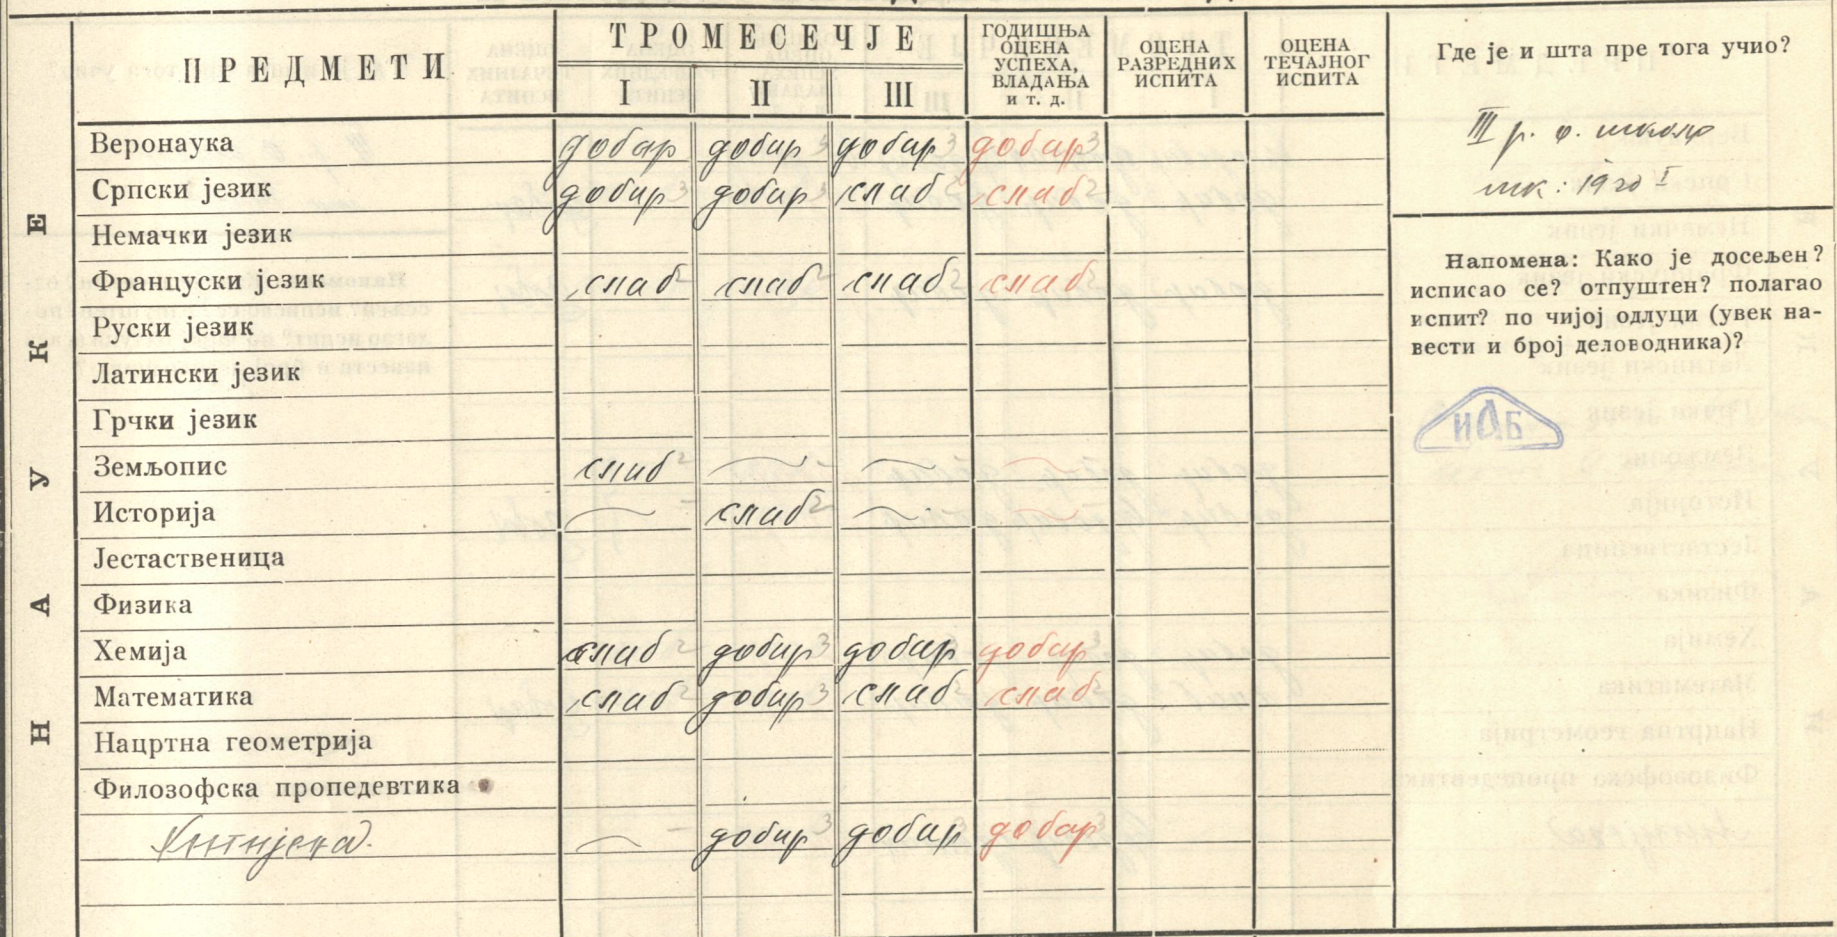 ПРЕДМЕТИ
ТРОМЕСЕЧЈЕ
I II III
ГОДИШЊА
ОЦЕНА
УСПЕХА,
ВЛАДАЊА
и т. д.
ОЦЕНА
РАЗРЕДНИХ
ИСПИТА
ОЦЕНА
ТЕЧАЈНОГ
ИСПИТА
НАУКЕ
Веронаука добар добар 3 добар 3 добар 3
Српски језик добар 3 добар 3 слаб 2 слаб 2
Немачки језик
Француски језик слаб 2 слаб 2 слаб 2 слаб 2
Руски језик
Латински језик
Грчки језик
Земљопис слаб 2
Историја слаб 2
Јестаственица
Физика
Хемија слаб 2 добар 3 добар добар 3
Математика слаб 2 добар 3 слаб 2 слаб 2
Нацртна геометрија
Филозофска пропедевтика
Хигијена. добар 3 добар 3 добар 3
Где је и шта пре тога учио?
III р. о.
шк: 1920
Напомена: Како је досељен?
исписао се? отпуштен? полагао
испит? по чијој одлуци (увек на-
вести и број деловодника)?
ИАБ